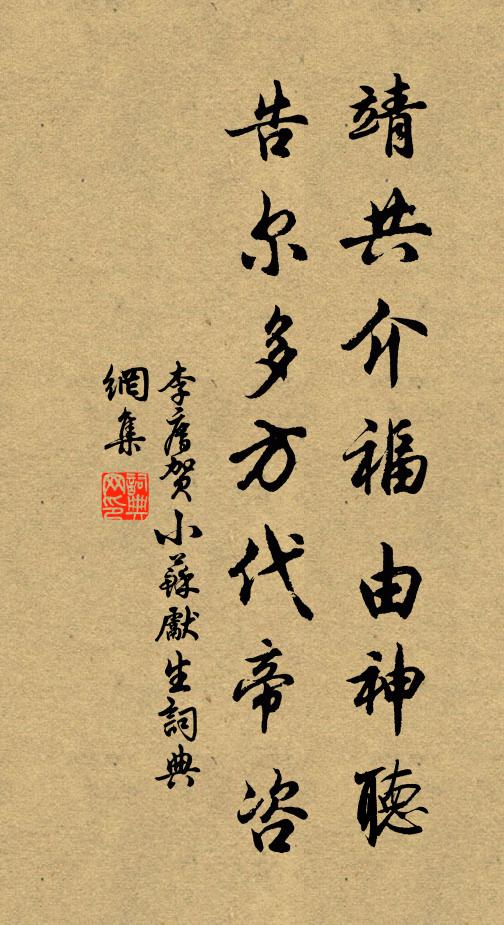 靖共介福由神聽
告尔多方代帝咨
李廌賀小蘇獻生詞典
網集
詞典網印